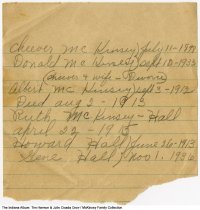 Cheever Mc Kinsey / July 11-18
Donald Mc Kinsey / Sept 10-1933
(Cheever & wife - Divorce)
Albert Mc Kinsey / Sept 3-1912
Died aug 2 - 1913
Ruth, McKinsey - Hall
april 22 - 1915
Howard Hall / June 26-1913
Gene Hall / Nov 1. 1936
The Indiana Album: Tim Harmon & John Osada Door / McKinsey Family Collection